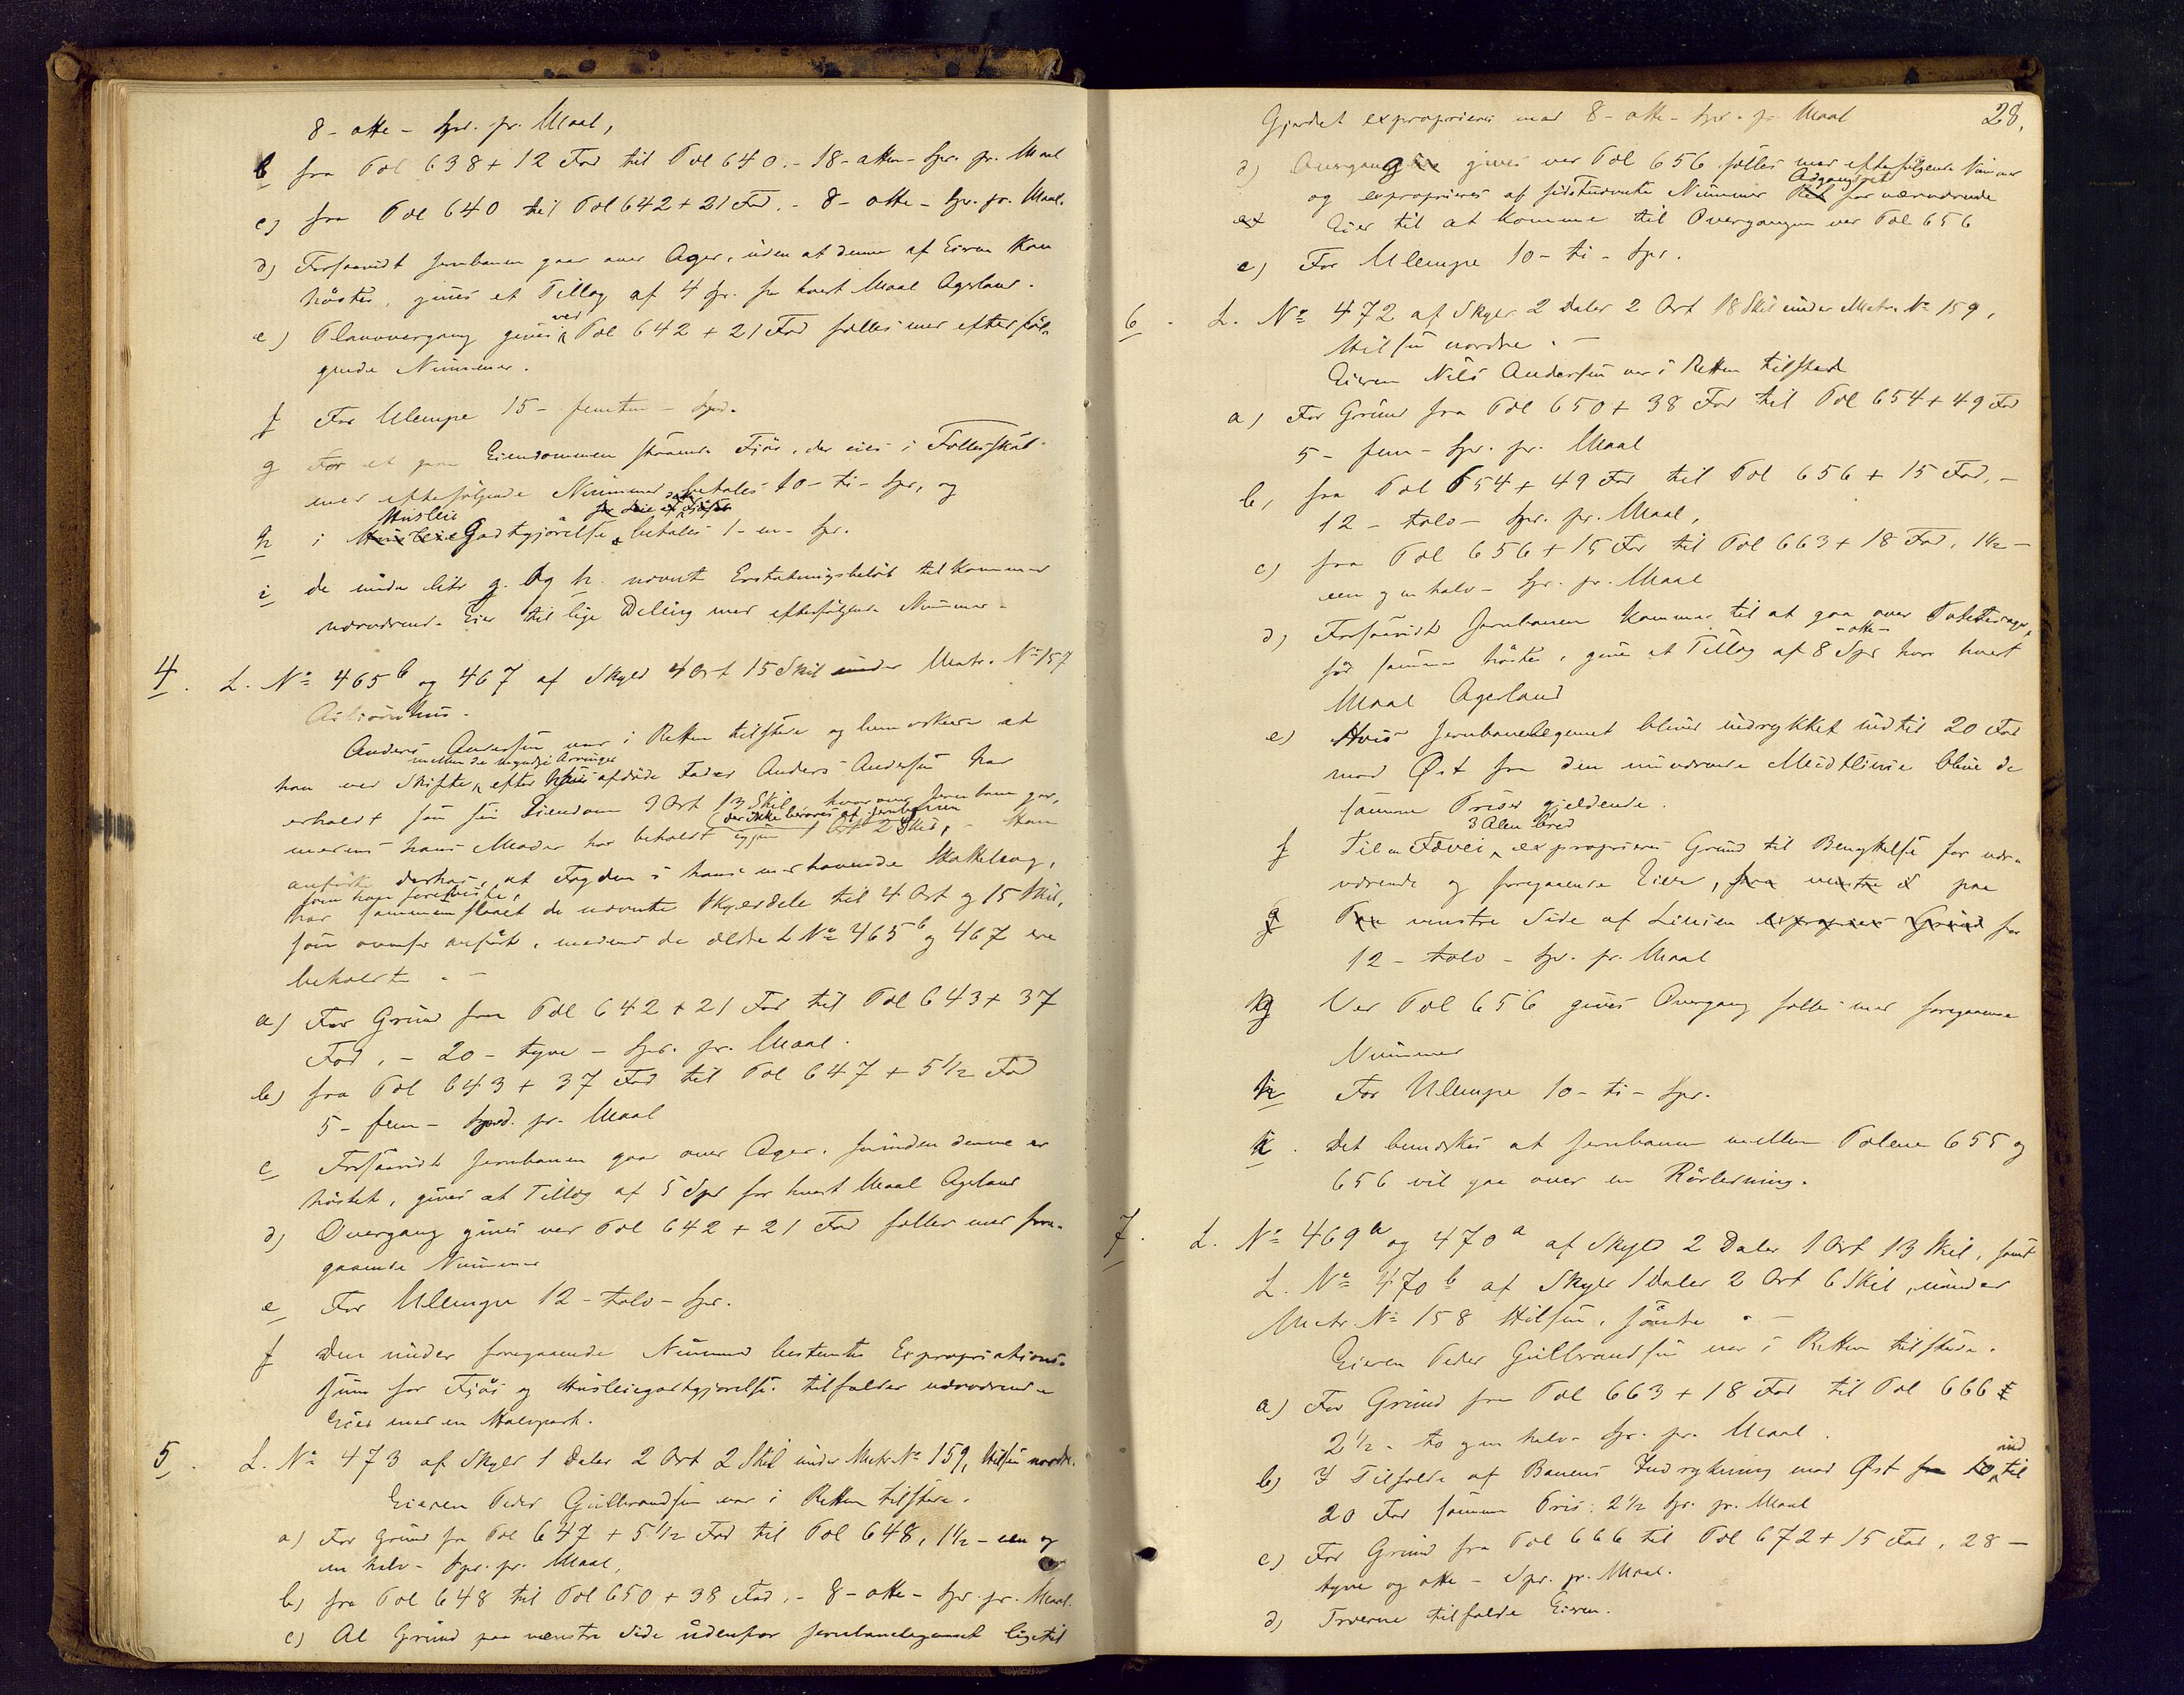 8 - otte - Spd. pr. Maal,
b fra Pæl 638 + 12 Fod til Pæl 640. - 18 - atten - Spd. pr. Maal
c) fra Pæl 640 til Pæl 642 + 21 Fod. - 8 - otte - Spd. pr. Maal.
d) Forsaavidt Jernbanen gaar over Ager, uden at denne af Eieren kan
høstes, gives et Tillæg af 4 Spd. for hvert Maal Agerland.
e) Planovergang gives ved Pæl 642 + 21 Fod fælles med efterføl-
gende Nummer.
f For Ulempe 15 - femten - Spd.
g For et paa Eiendommen staaende Fjøs, der eies i Fællesskab
med efterfølgende Nummer betales 10 - ti - Spd, og
Husleie
h i Godtgjørelse betales 1 - en - Spd.
i de under litr g. og h. nævnte Erstatningsbeløb tilkommer
nærværende Eier til lige Deling med efterfølgende Nummer.
4. L. No 465 b og 467 af Skyld 4 Ort 15 Skil under Matr. No 157
Anders Andersen var i Retten tilstede og bemærkede at
mellem de myndige Arvinger
han ved Skifte efter hans afdøde Fader Anders Andersen har
erholdt som sin Eiendom 3 Ort 13 Skil, hvorover Jernbanen gaar,
(der ikke berøres af Jernbanen
medens hans Moder har beholdt igjen 1 Ort 2 Skil, - Han
anførte derhos, at Fogden i hans medhavende Skattebog,
som han foreviste,
har sammenslaaet de nævnte Skylddele til 4 Ort og 15 Skil,
som ovenfor anført, medens de ældre L No 465 b og 467 ere
beholdte. -
a) For Grund fra Pæl 642 + 21 Fod til Pæl 643 + 37
Fod, - 20 - tyve - Spd. pr. Maal.
b) fra Pæl 643 + 37 Fod til Pæl 647 + 5 1/2 Fod
5 - fem - Spd. pr. Maal
c Forsaavidt Jernbanen gaar over Ager, førinden denne er
høstet, gives et Tillæg af 5 Spd for hvert Maal Agerland
d) Overgang gives ved Pæl 642 + 21 Fod fælles med fore-
gaaende Nummer
e For Ulempe 12 - tolv - Spd.
f Den under foregaaende Nummer bestemte Expropriations-
sum for Fjøs og Husleiegodtgjørelse tilfalder nærværende
Eier med en Halvpart.
5. L. No 473 af Skyld 1 Daler 2 Ort 2 Skil under Matr No 159, Hilsen nordre.
Eieren Peder Gulbrandsen var i Retten tilstede.
a) For Grund fra Pæl 647 + 5 1/2 Fod til Pæl 648, 1 1/2 - een og
en halv - Spd. pr. Maal,
b) fra Pæl 648 til Pæl 650 + 38 Fod, - 8 - otte - Spd. pr. Maal.
c) Al Grund paa venstre Side udenfor Jernbanelegemet ligetil
28.
Gjerdet exproprieres med 8 - otte - Spd. pr Maal
d) Overgang gives ved Pæl 656 fælles med efterfølgende Nummer
Adgangsret
og exproprieres af sidstnævnte Nummer for nærværende
Eier til at komme til Overgangen ved Pæl 656
e) For Ulempe 10 - ti - Spd.
6. L. No 472 af Skyld 2 Daler 2 Ort 18 Skil under Matr. No 159,
Hilsen nordre. -
Eieren Nils Andersen var i Retten tilstede
a) For Grund fra Pæl 650 + 38 Fod til Pæl 654 + 49 Fod
5 - fem - Spd. pr. Maal
b, fra Pæl 654 + 49 Fod til Pæl 656 + 15 Fod, -
12 - tolv - Spd. pr. Maal,
c) fra Pæl 656 + 15 Fod til Pæl 663 + 18 Fod, 1 1/2 -
een og en halv - Spd. pr. Maal
d) Forsaavidt Jernbanen kommer til at gaa over Potetesager,
- otte -
før samme høstes, gives et Tillæg af 8 Spd for hvert
Maal Agerland
e) Hvis Jernbanelegemet bliver indrykket indtil 20 Fod
mod Øst fra den nuværende Midtlinie blive de
samme Priser gjeldende.
3 Alen bred
f Til en Fævei exproprieres Grund til Benyttelse for nær-
værende og foregaaende Eier, paa
venstre Side af Linien for
12 - tolv - Spd. pr. Maal
g Ved Pæl 656 gives Overgang fælles med foregaaende
Nummer
h For Ulempe 10 - ti - Spd.
i. Det bemærkes at Jernbanen mellem Pælene 655 og
656 vil gaa over en Rørledning.
7. L. No 469 a og 470 a af Skyld 2 Daler 1 Ort 13 Skil, samt
L. No 470 b af Skyld 1 Daler 2 Ort 6 Skil, under
Matr. No 158 Hilsen, søndre. -
Eieren Peder Gulbrandsen var i Retten tilstede.
a) For Grund fra Pæl 663 + 18 Fod til Pæl 666
2 1/2 - to og en halv - Spd. pr. Maal.
b) I Tilfælde af Banens Indrykning mod Øst indtil
20 Fod samme Pris: 2 1/2 Spd. pr. Maal
c) For Grund fra Pæl 666 til Pæl 672 + 15 Fod, 28 -
tyve og otte - Spd. pr. Maal.
d) Træerne tilfalde Eieren.